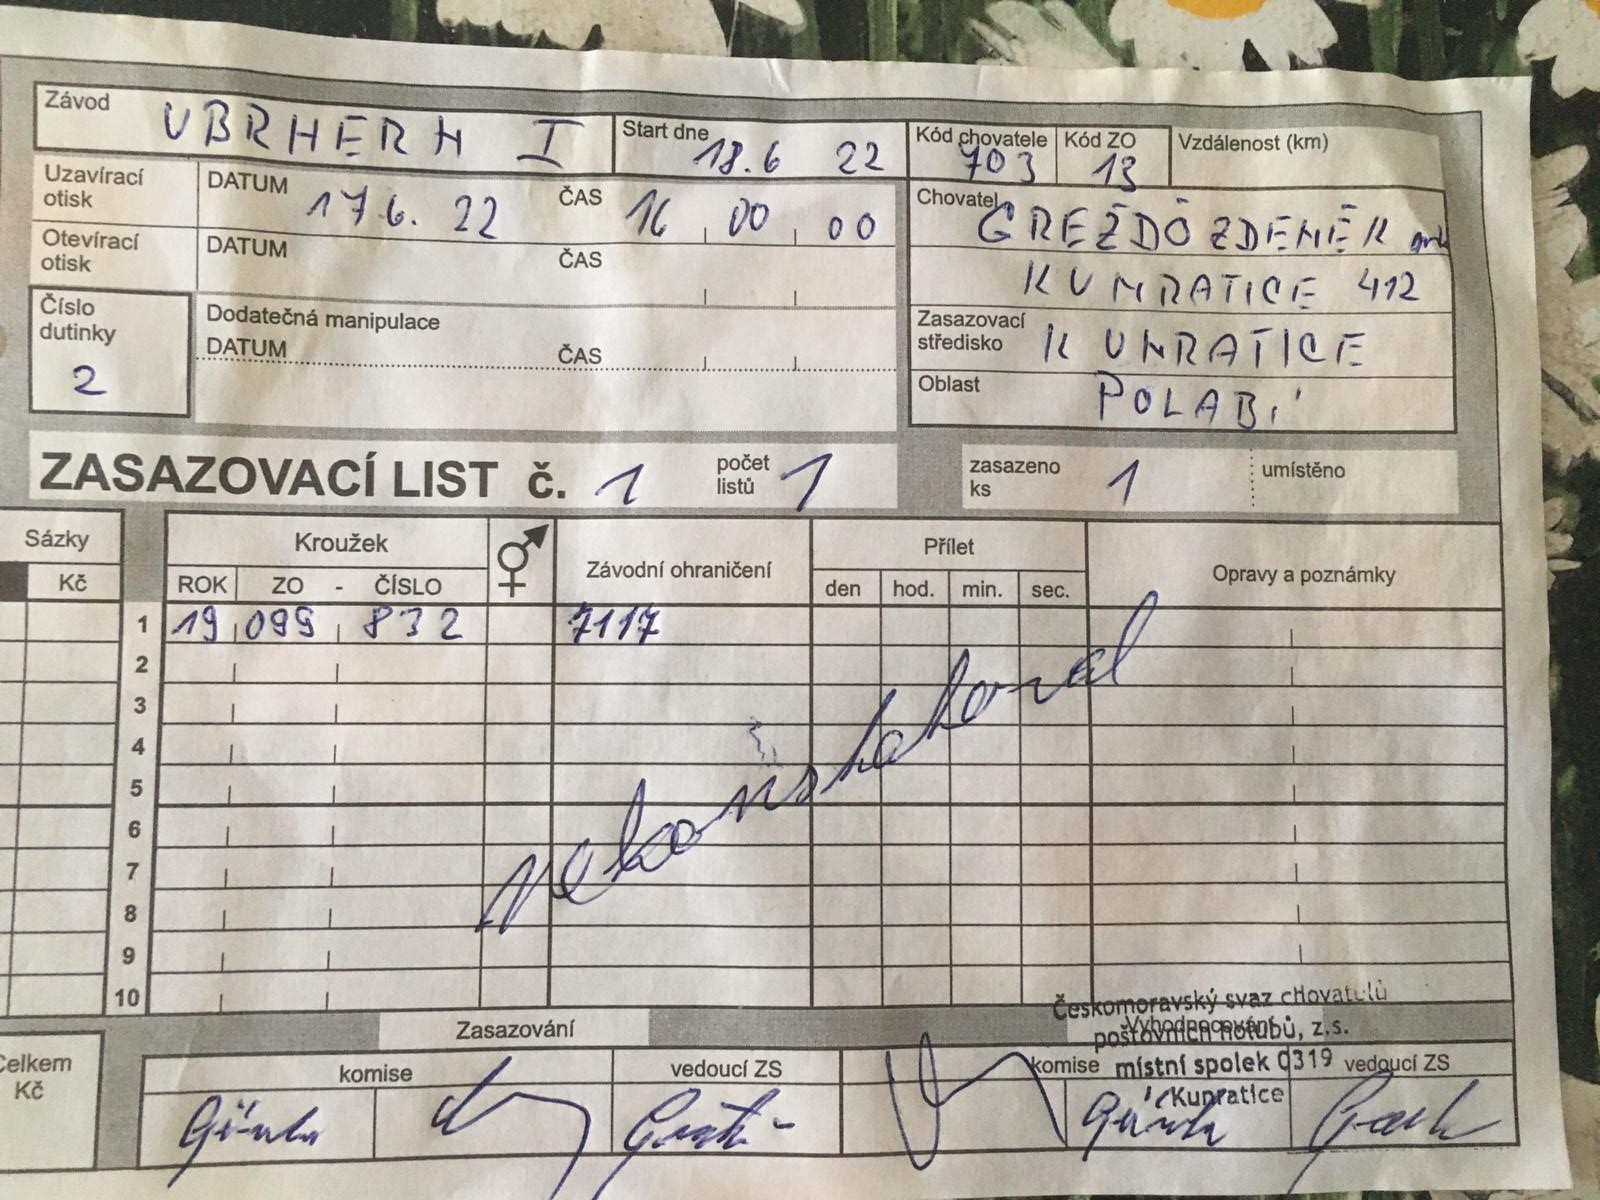 Závod VBRHERH I Start dne 18.6 22 Kód chovatele 703 Kód ZO 13 Vzdálenost (km)
Uzavírací otisk DATUM 17 6. 22 ČAS 16 00 00 Chovatel GREŽĎO ZDENĚK
Otevírací otisk DATUM ČAS KUNRATICE 412
Číslo dutinky 2 Dodatečná manipulace Zasazovací středisko KUNRATICE
DATUM ČAS Oblast POLABÍ
ZASAZOVACÍ LIST č. 1 počet listů 1 zasazeno ks 1 umístěno
Sázky Kroužek Závodní ohraničení Přílet Opravy a poznámky
Kč ROK ZO - ČÍSLO den hod. min. sec.
1 19 099 832 7117
2
3
4
5
6
7
8
9
10
Českomoravský svaz chovatelů
Zasazování Vyhodnocování
poštovních holubů, z.s.
Celkem Kč komise vedoucí ZS komise místní spolek 0319 vedoucí ZS
Kunratice